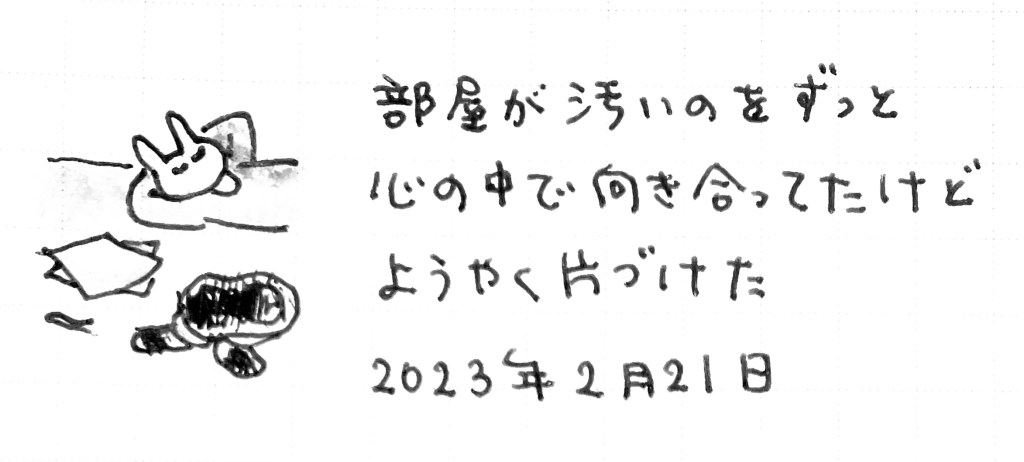 部屋が汚いのをずっと
心の中で向き合ってたけど
ようやく片づけた
2023年2月21日